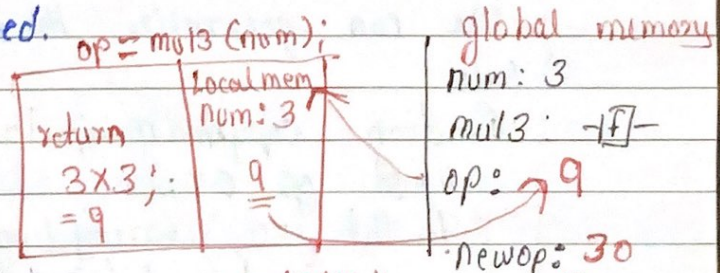 ed.
op = mul3 (num);
return
3x3;
= 9
Local mem
num: 3
9
global memory
num: 3
mul3: -[f]-
op: 9
newop: 30